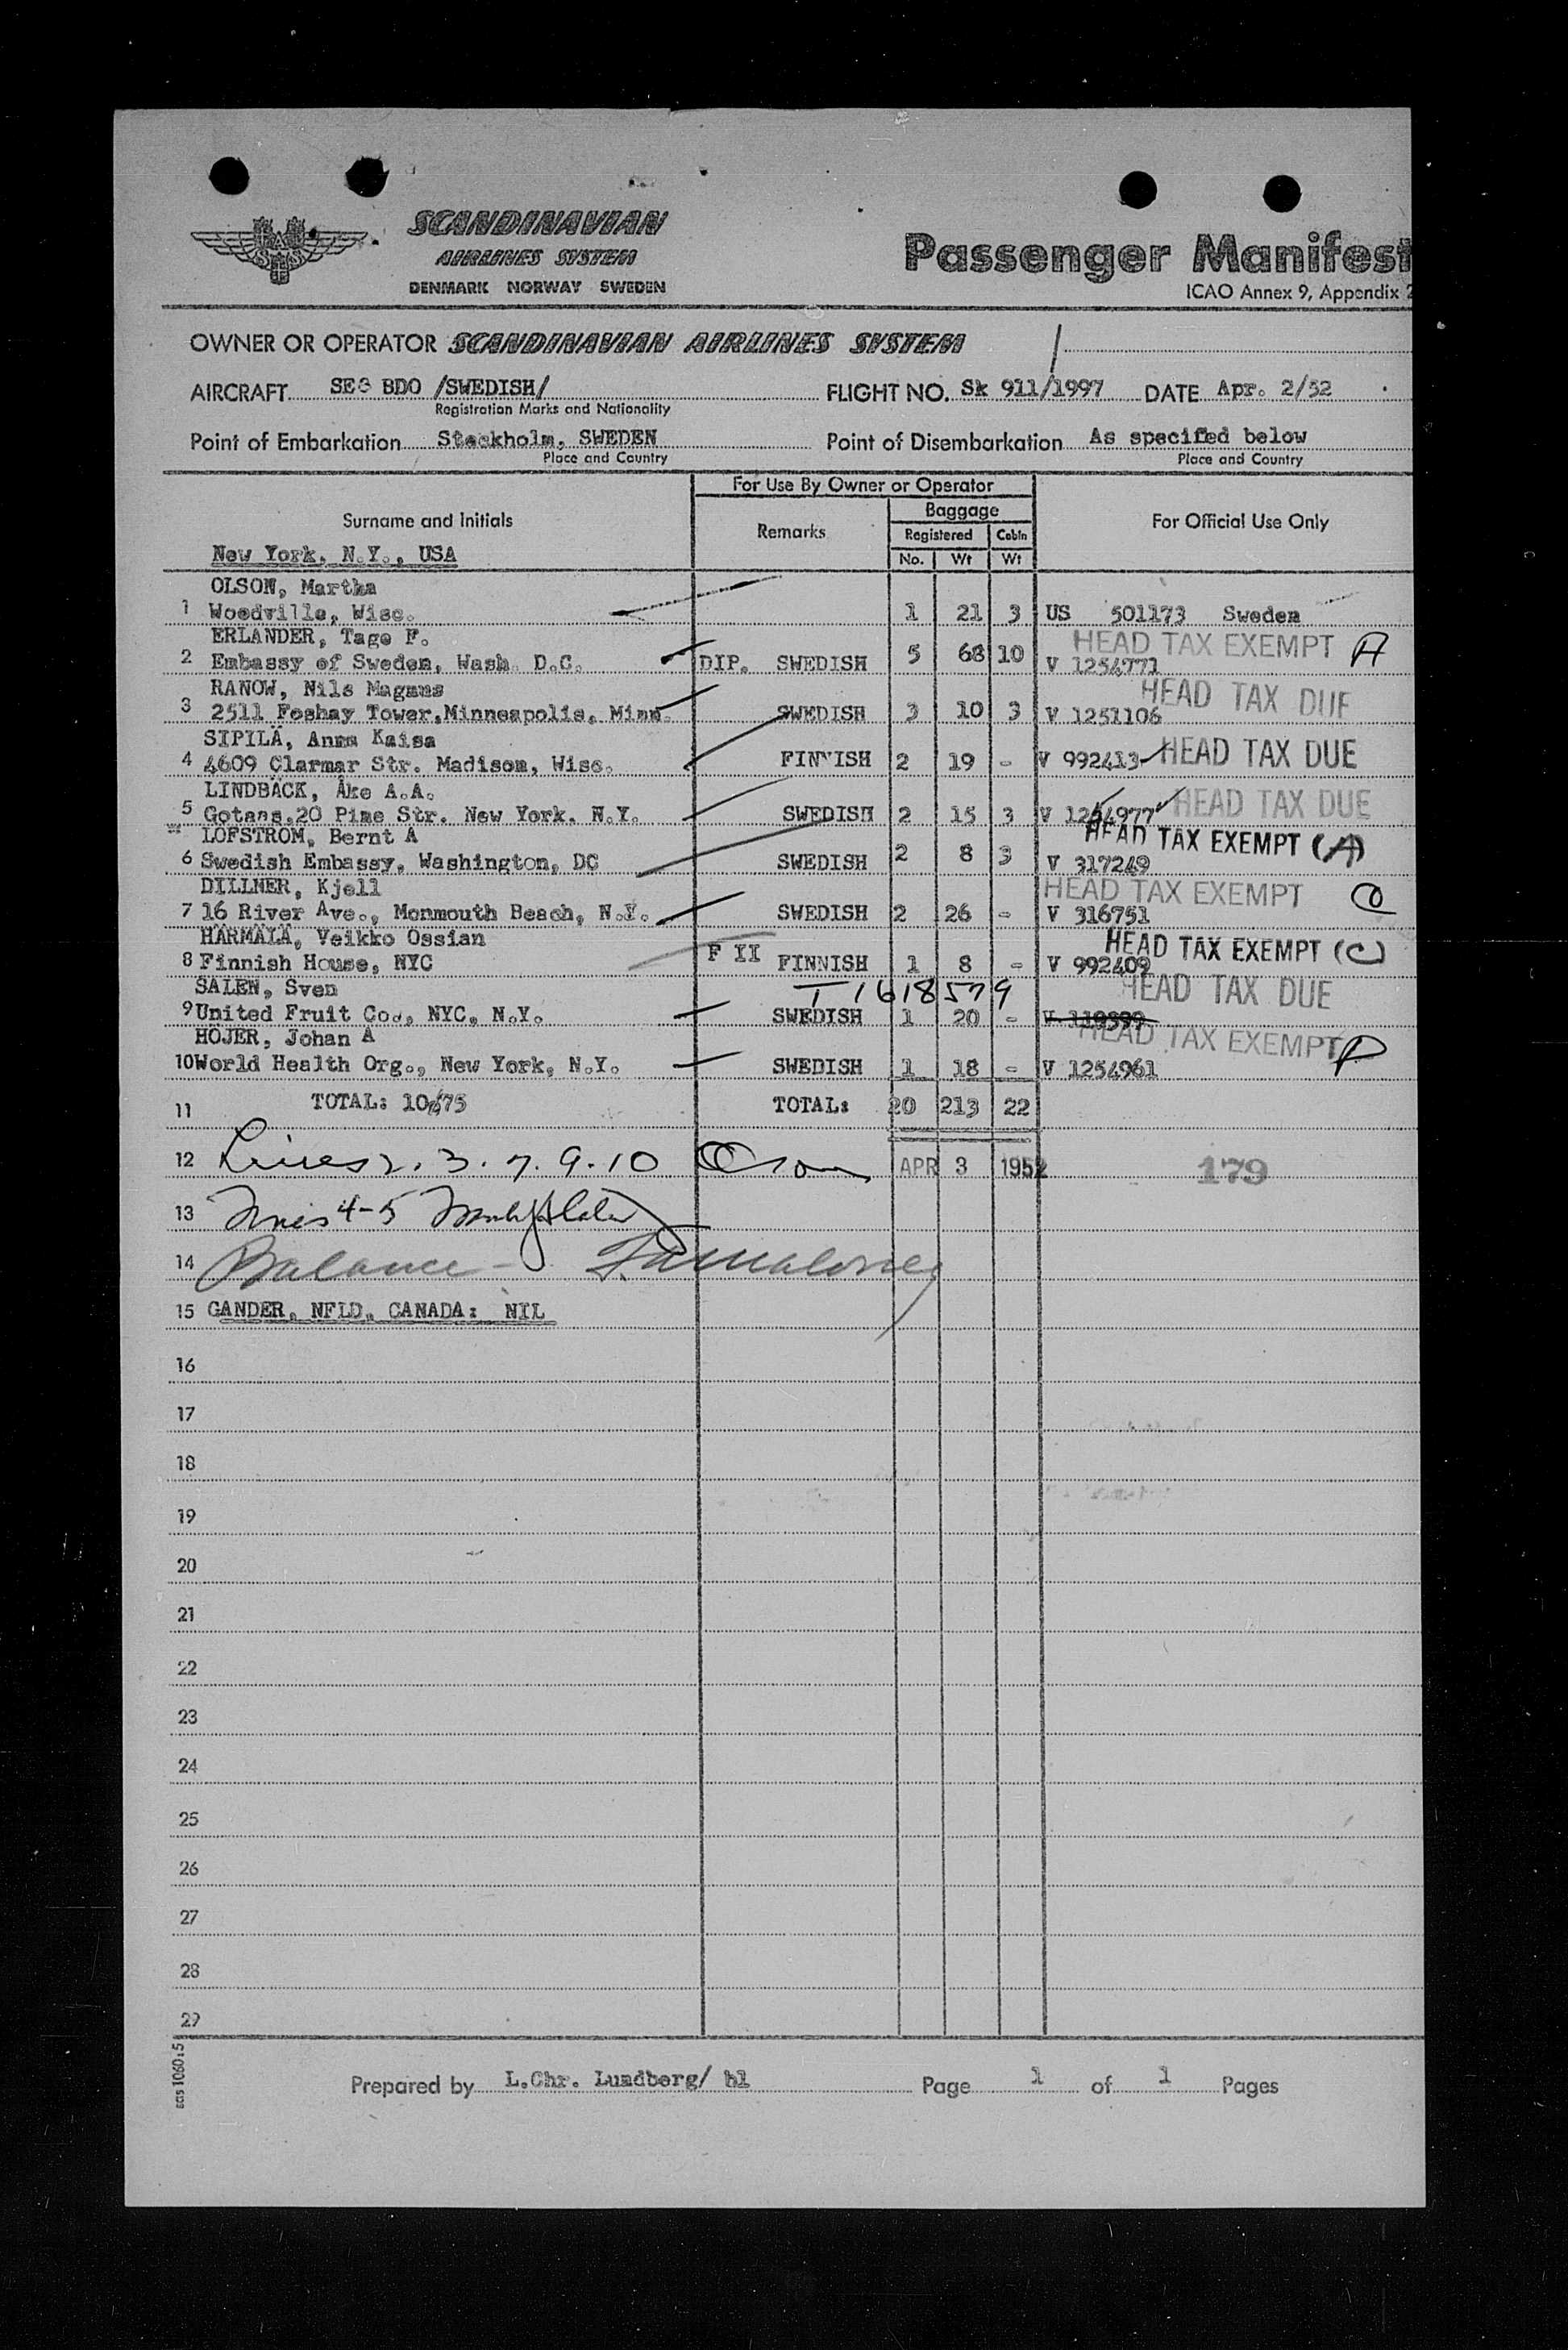 SCANDINAVIAN
AIRLINES SYSTEM
DENMARK NORWAY SWEDEN
Passenger Manifest
ICAO Annex 9, Appendix 2
OWNER OR OPERATOR SCANDINAVIAN AIRLINES SYSTEM
AIRCRAFT SEG BDO /SWEDISH/ FLIGHT NO. Sk 911/1997 DATE Apr. 2/52
Registration Marks and Nationality
Point of Embarkation Stockholm, SWEDEN Point of Disembarkation As specified below
Place and Country Place and Country
For Use By Owner or Operator
Surname and Initials Remarks Baggage For Official Use Only
Registered Cabin
New York, N.Y., USA No. Wt Wt
OLSON, Martha
1 Woodville, Wisc. 1 21 3 US 501173 Sweden
ERLANDER, Tage F. HEAD TAX EXEMPT A
2 Embassy of Sweden, Wash. D.C. DIP. SWEDISH 5 68 10 V 1254771
RANOW, Nils Magnus HEAD TAX DUE
3 2511 Foshay Tower, Minneapolis, Minn. SWEDISH 3 10 3 V 1251106
SIPILÄ, Anna Kaisa
4 4609 Clarmar Str. Madison, Wisc. FINNISH 2 19 - V 992413 HEAD TAX DUE
LINDBÄCK, Åke A.A.
5 Gotaas, 20 Pine Str. New York, N.Y. SWEDISH 2 15 3 V 1254977 HEAD TAX DUE
LÖFSTRÖM, Bernt A HEAD TAX EXEMPT (A)
6 Swedish Embassy, Washington, DC SWEDISH 2 8 3 V 317249
DILLNER, Kjell HEAD TAX EXEMPT
7 16 River Ave., Monmouth Beach, N.Y. SWEDISH 2 26 - V 316751
HÄRMÄLÄ, Veikko Ossian HEAD TAX EXEMPT (C)
8 Finnish House, NYC F II FINNISH 1 8 - V 992409
SALEN, Sven T 1618579 HEAD TAX DUE
9 United Fruit Co., NYC, N.Y. SWEDISH 1 20 - V 119399
HOJER, Johan A HEAD TAX EXEMPT
10 World Health Org., New York, N.Y. SWEDISH 1 18 - V 1254961
11 TOTAL: 10/675 TOTAL: 20 213 22
12 Lines 2. 3. 7. 9. 10 Olson APR 3 1952 179
13 Lines 4-5
14 Balance -
15 GANDER, NFLD, CANADA: NIL
16
17
18
19
20
21
22
23
24
25
26
27
28
29
sas 1060:5
Prepared by L.Chr. Lundberg/ hl Page 1 of 1 Pages